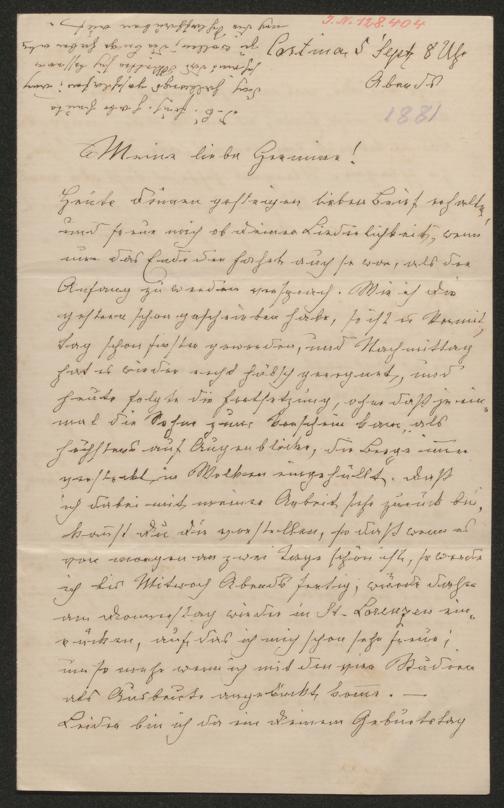 I.N. 128.404
Cortina 5 Sept 8 Uhr
Abends
1881
Meine liebe Hermine!
Heute Deinen gestrigen lieben Brief erhalten
und freue mich ob deiner Liederlichkeit, wenn
nur das Ende der Fahrt auch so war, als der
Anfang zu werden versprach. Wie ich dir
gestern schon geschrieben habe, so ist es Vormit-
tag schon finster geworden, und Nachmittag
hat es wieder recht hübsch geregnet, und
heute folgte die Fortsetzung, ohne daß je ein-
mal die Sonne zum Vorschein kam, als
höchstens auf Augenblicke, die Berge immer
versteckt, in Wolken eingehüllt. Daß
ich dabei mit meiner Arbeit sehr zurück bin,
kannst du dir vorstellen, so daß wenn es
von morgen an zwei Tage schön ist, so werde
ich bis Mitwoch Abends fertig, würde daher
am Donnerstag wieder in St. Lorenzen ein-
rücken, auf das ich mich schon sehr freue;
um so mehr wenn ich mit den vier Städien
als Ausbeute angerückt komme. —
Leider bin ich da an Deinem Geburtstag